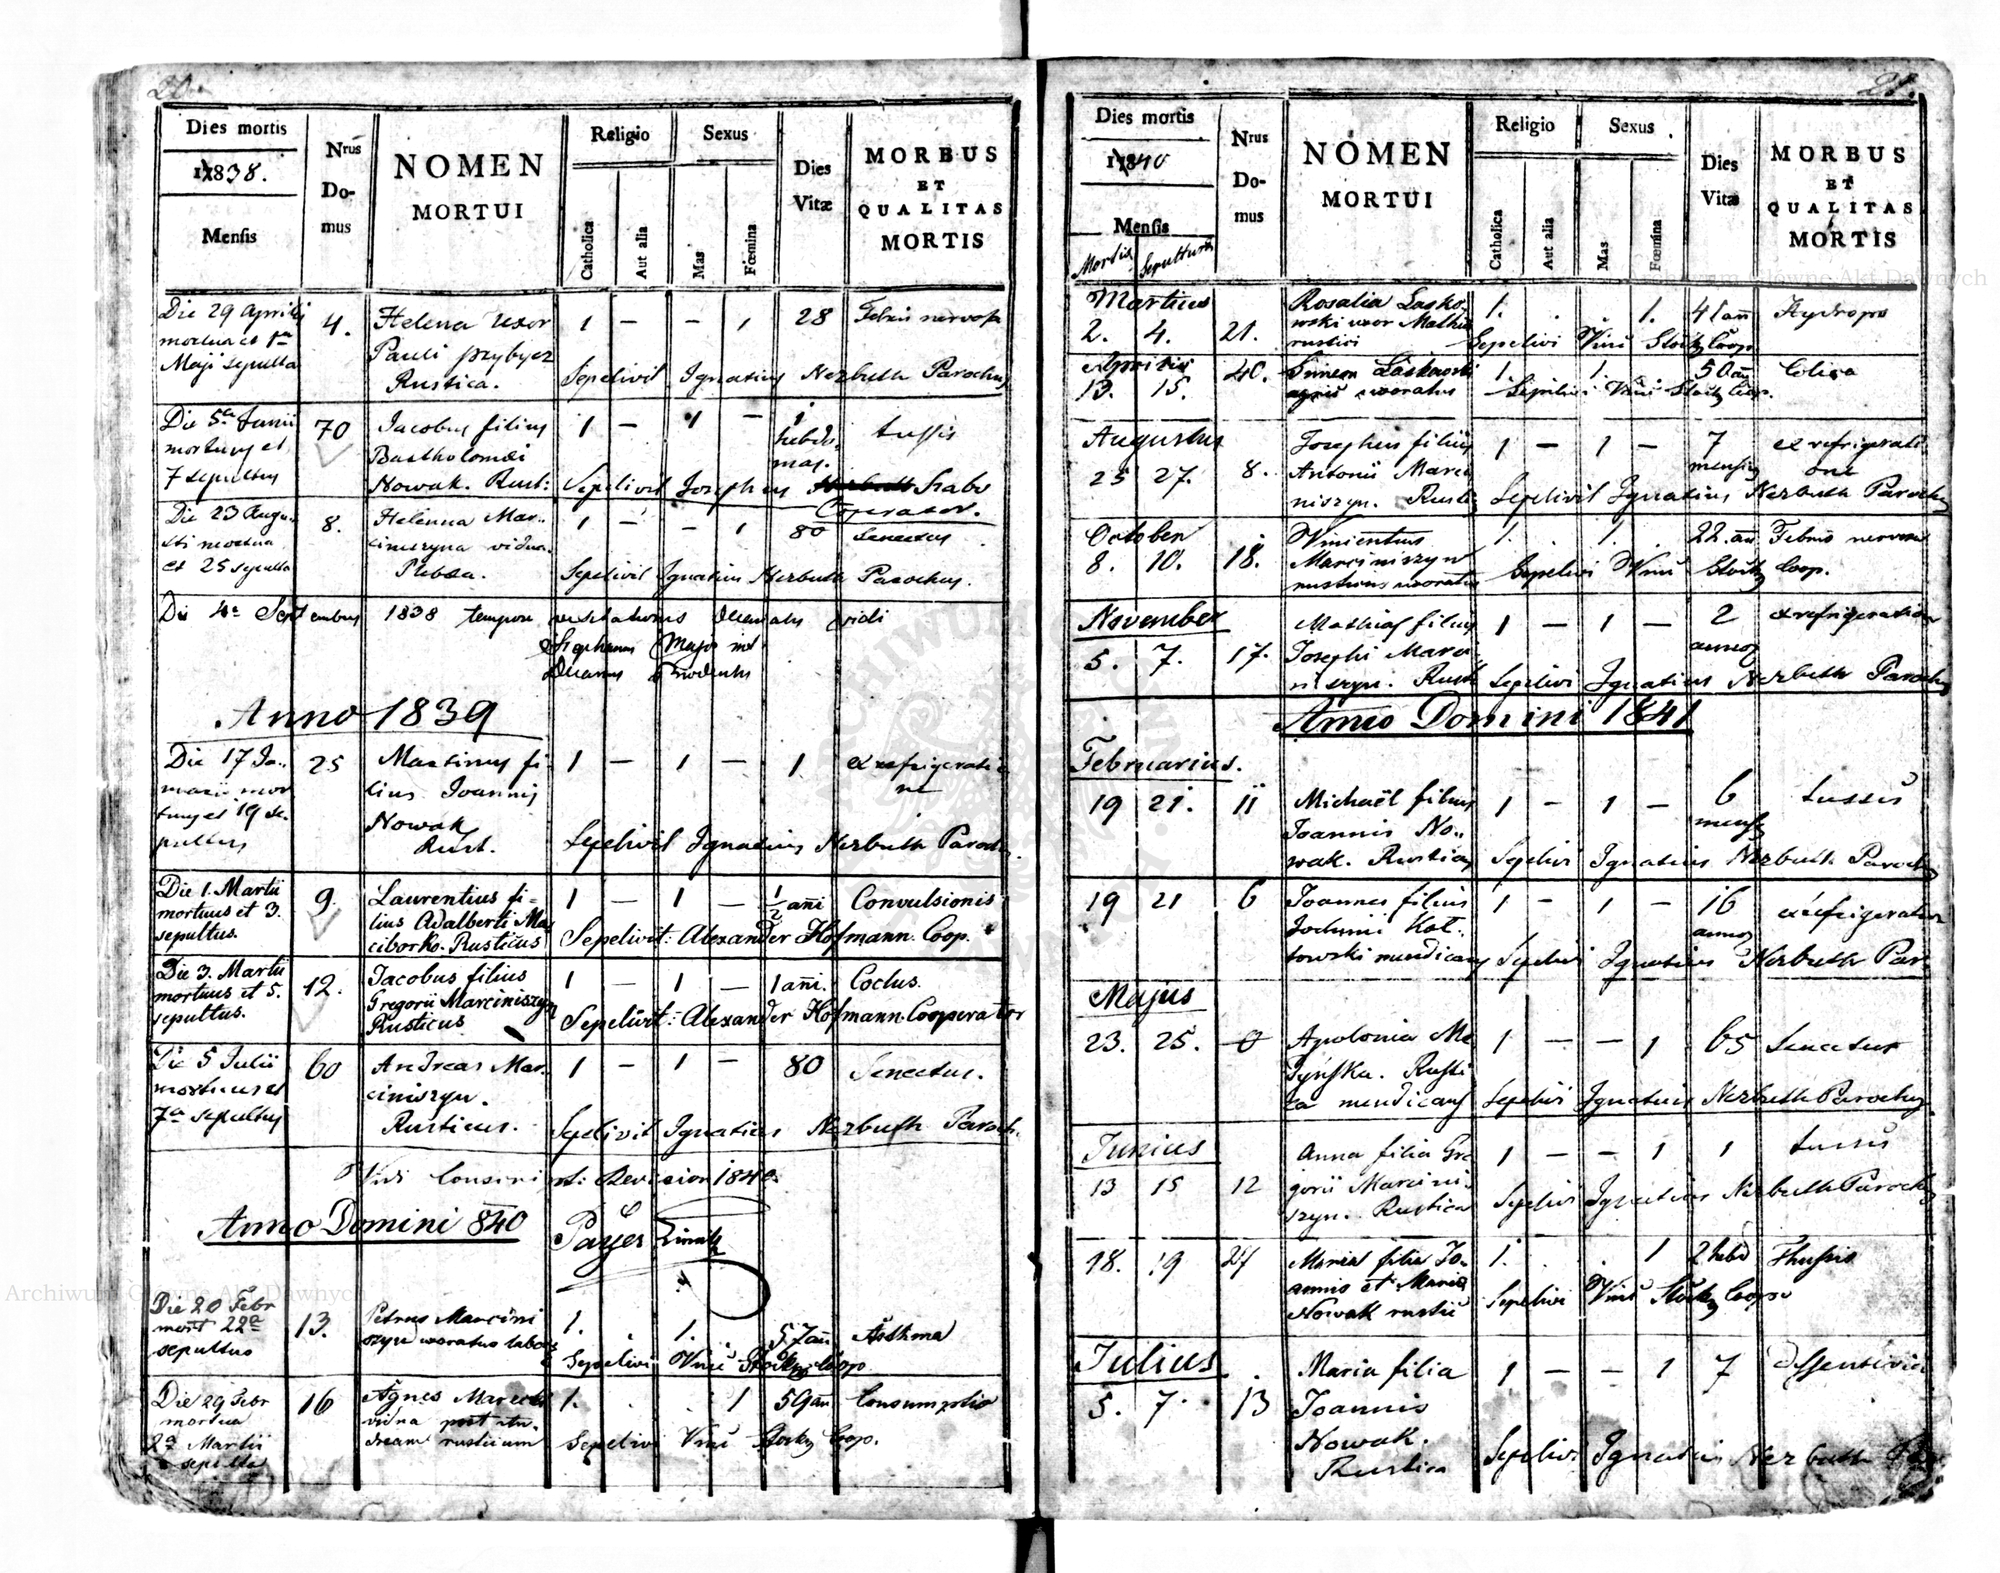 20.
Dies mortis
1838.
Mensis
Nrus Domus
NOMEN
MORTUI
Religio
Catholica
Aut alia
Sexus
Mas
Fœmina
Dies Vitæ
MORBUS
ET
QUALITAS
MORTIS
Die 29 Aprilis 4. Helena uxor 1 — — 1 28 Febris nervosa
mortua et 1ma Pauli Przybycz
Maji sepulta Rustica. Sepelivit Ignatius Nerbuth Parochus
Die 5ta Junii 70 Jacobus filius 1 — 1 — 1 tussis
mortuus et Bartholomæi hebdo-
7 sepultus Nowak. Rust: mas.
Sepelivit Josephus Szabo
Cooperator.
Die 23 Augu- 8. Helenna Mar- 1 — — 1 80 Senectus
sti mortua ciniszyna vidua
et 25 sepulta Plebea. Sepelivit Ignatius Nerbuth Parochus.
Die 4a Septembris 1838 tempore visitationis Decanalis vidi
Stephanus Major
Decanus
Anno 1839
Die 17 Ja- 25 Martinus fi- 1 — 1 — 1 ex refrigeratio
nuarii mor- lius Joannis ne
tuus et 19 se- Nowak
pultus Rust. Sepelivit Ignatius Nerbuth Paroch.
Die 1. Martii 9. Laurentius fi- 1 — 1 — 1/2 añi Convulsionis
mortuus et 3. lius Adalberti Ma
sepultus. ciborko. Rusticus Sepelivit: Alexander Hofmann. Coop.
Die 3. Martii 12. Jacobus filius 1 — 1 — 1 añi. Coclus.
mortuus et 5. Gregorii Marciniszyn
sepultus. Rusticus Sepelivit: Alexander Hofmann. Cooperator
Die 5 Julii 60 Andreas Mar- 1 — 1 — 80 Senectus.
mortuus et ciniszyn.
7a sepultus Rusticus. Sepelivit Ignatius Nerbuth Paroch.
Vidi Revision 1840.
Anno Domini 840
Die 20 Febr 13. Petrus Marcini 1. . 1. . 57 añ Asthma
mort 22a szyn uxoratus
sepultus Sepelivi Vinc Stocky Coop
Die 29 Febr 16 Agnes 1. . . 1 59 añ Consumptio
mortua vidua post An-
2a Martii dream rusticum Sepelivi Vinc Stocky Coop.
sepulta
21.
Dies mortis
1840
Mensis
Mortis Sepulturæ
Nrus Domus
NOMEN
MORTUI
Religio
Catholica
Aut alia
Sexus
Mas
Fœmina
Dies Vitæ
MORBUS
ET
QUALITAS
MORTIS
Martius Rosalia Lasko- 1. . . 1. 41 añ Hydrops
2. 4. 21. wski uxor Mathiæ
rustici Sepelivi Vinc Stocky Coop
Aprilis 40. Simeon Laskowski 1. 1. . 50 añ Colica
13. 15. uxoratus Sepelivi Vinc Stocky Coop.
Augustus Josephus filius 1 — 1 — 7 ex refrigerati-
25 27. 8. Antonii Marci mensis one
niszyn. Rusti Sepelivit Ignatius Nerbuth Parochus
October Vincentius 1. . 1. . 22. añ Febris nervosa
8. 10. 18. Marciniszyn
rusticus uxoratus Sepelivi Vinc Stocky Coop.
November Mathias filius 1 — 1 — 2 ex refrigeratione
5. 7. 17. Josephi Marci- annos
niszyn. Rust Sepelivi Ignatius Nerbuth Parochus
Anno Domini 1841
Februarius.
19 21. 11 Michaël filius 1 — 1 — 6 tussis
Joannis No- mens
wak. Rusticus Sepelivi Ignatius Nerbuth Parochus
19 21 6 Joannes filius 1 — 1 — 16 ex refrigeration
annos
towski mendicans Sepelivi Ignatius Nerbuth Par.
Majus
23. 25. 0 Apolonia 1 — — 1 65 Senectus
Rusti
ca mendicans Sepelivi Ignatius Nerbuth Parochus
Junius Anna filia Gre 1 — — 1 1 tussis
13 15 12 gorii Marcini-
szyn. Rustica Sepelivi Ignatius Nerbuth Parochus
18. 19 24 Maria filia Jo- 1. . . 1 2 hebd Thussis
annis et Maria
Nowak rustic Sepelivi Vinc Stocky Coop
Julius Maria filia 1 — — 1 7
5. 7. 13 Joannis
Nowak.
Rustica Sepelivi Ignatius Nerbuth
Archiwum Główne Akt Dawnych
Archiwum Główne Akt Dawnych